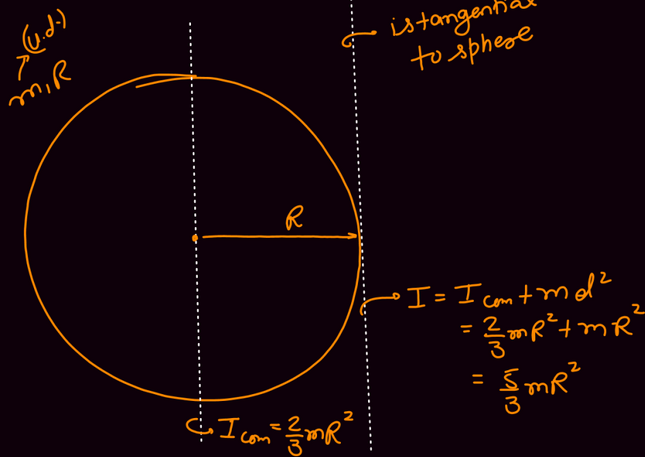 (u.d.)
m, R
is tangential
to sphere
R
I = I com + md²
= 2/3 mR² + mR²
= 5/3 mR²
I com = 2/3 mR²